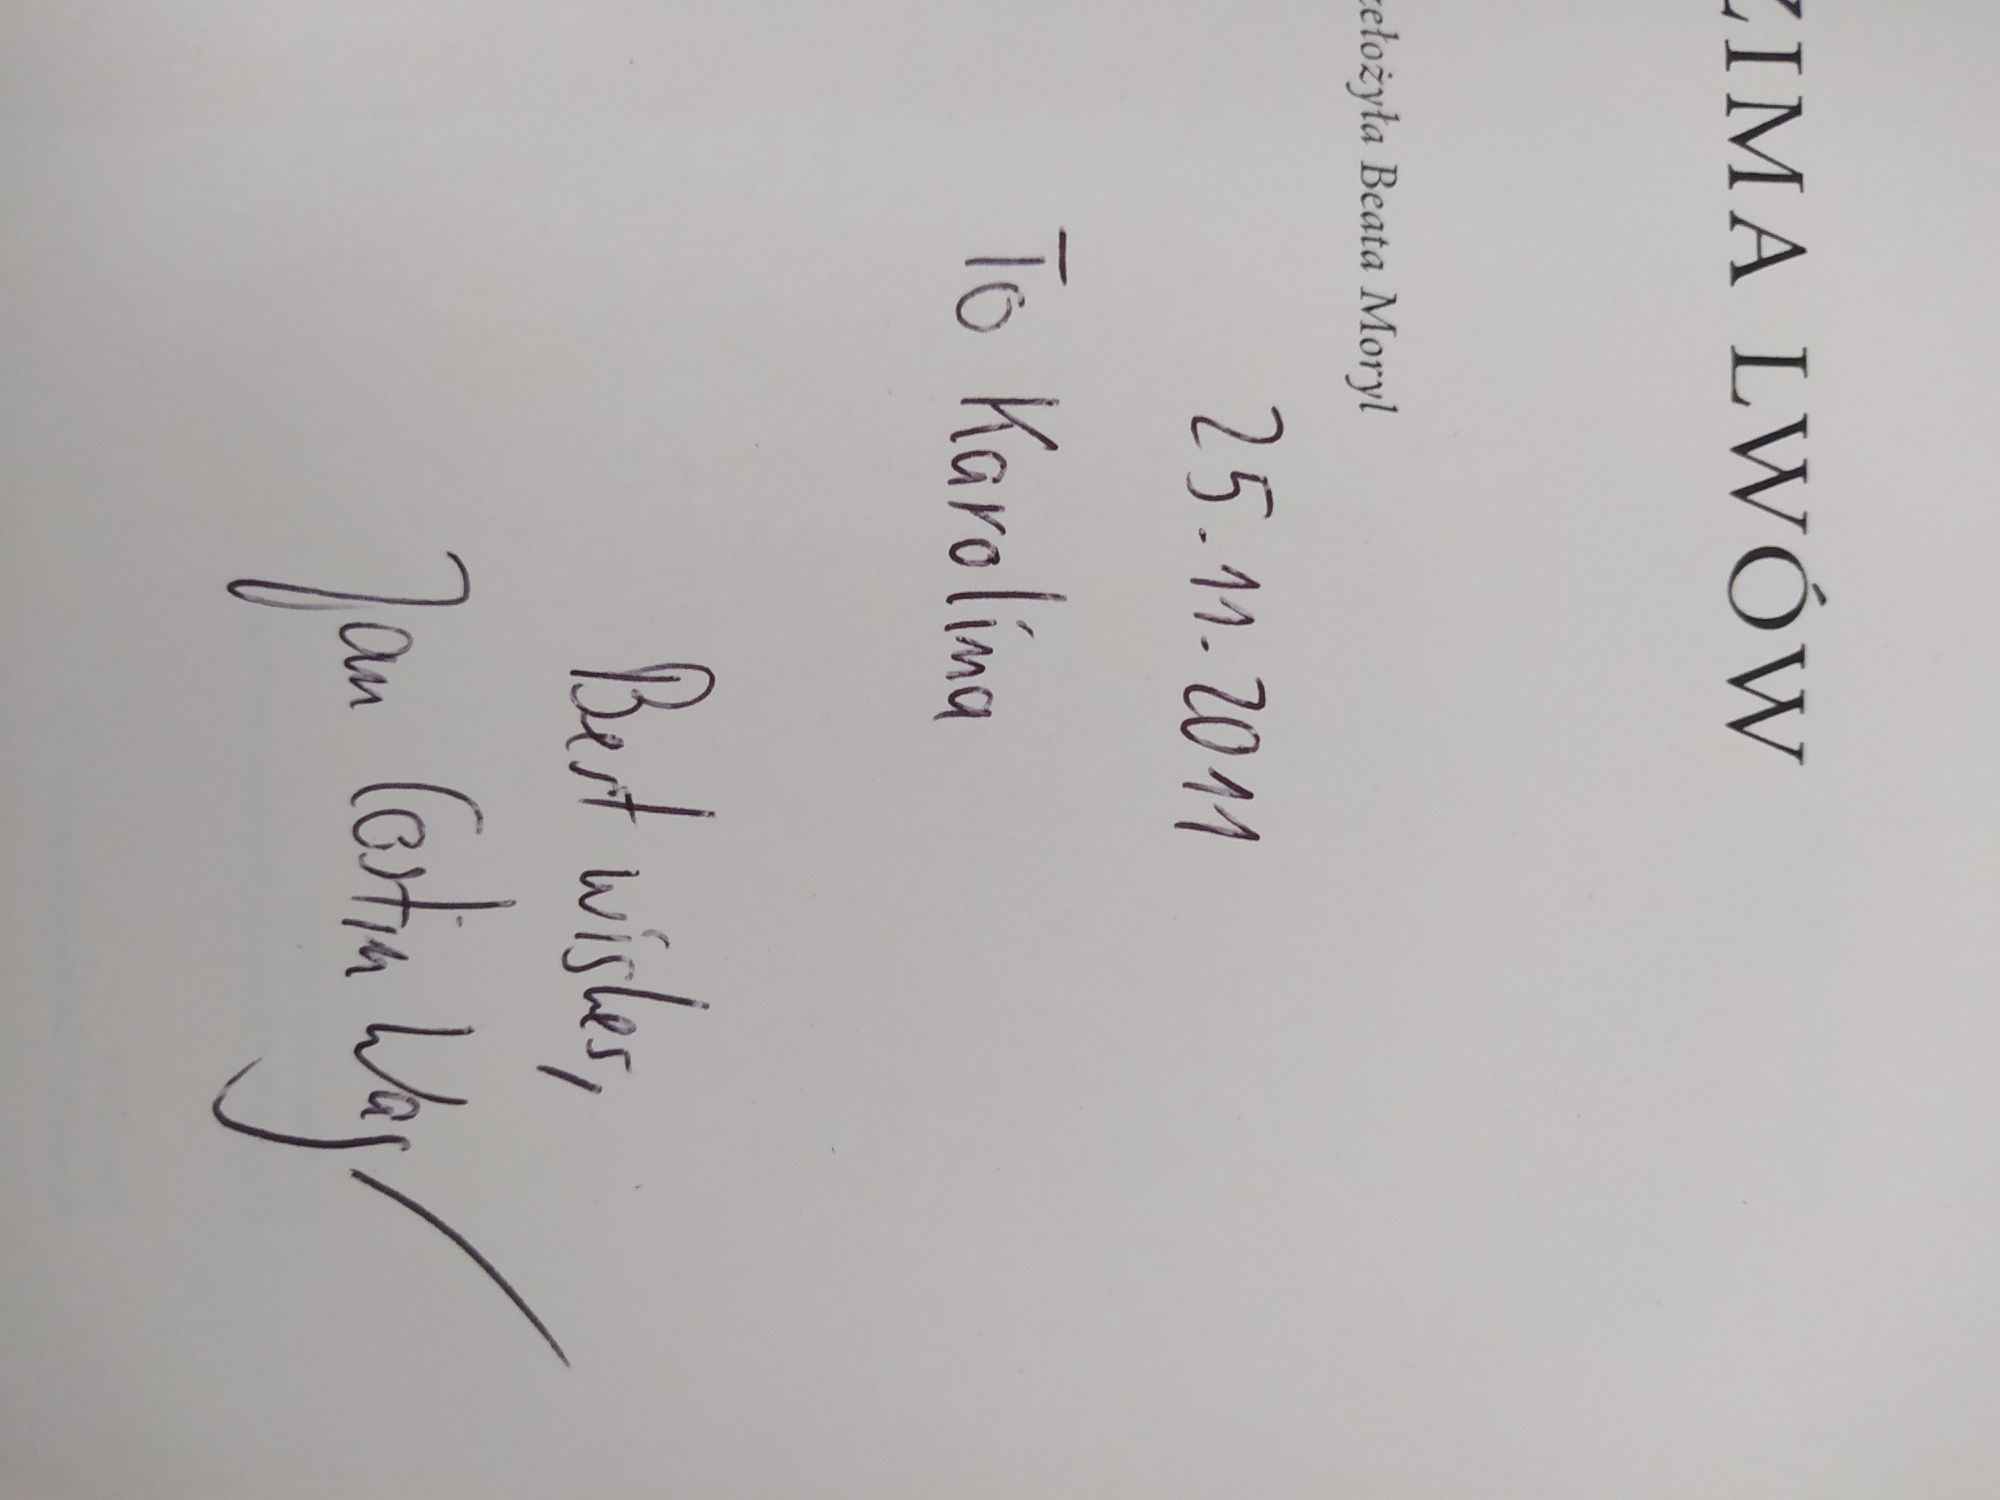 ZIMA LWÓW
zełożyła Beata Moryl
25.11.2011
To Karolina
Best wishes,
Jan Costin Wag